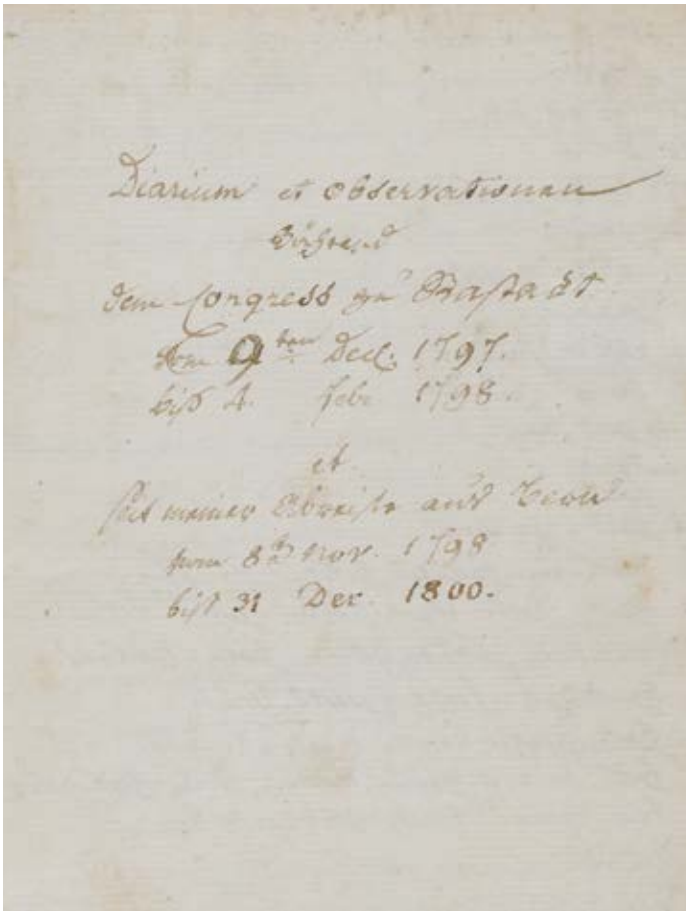 Diarium et observationen
während
dem Congress zu Rastadt
vom 9ten Dec. 1797.
biß 4. febr 1798.
et
seit meiner Abreise aus Bern
vom 8t Nov. 1798
biß 31 Dec. 1800.